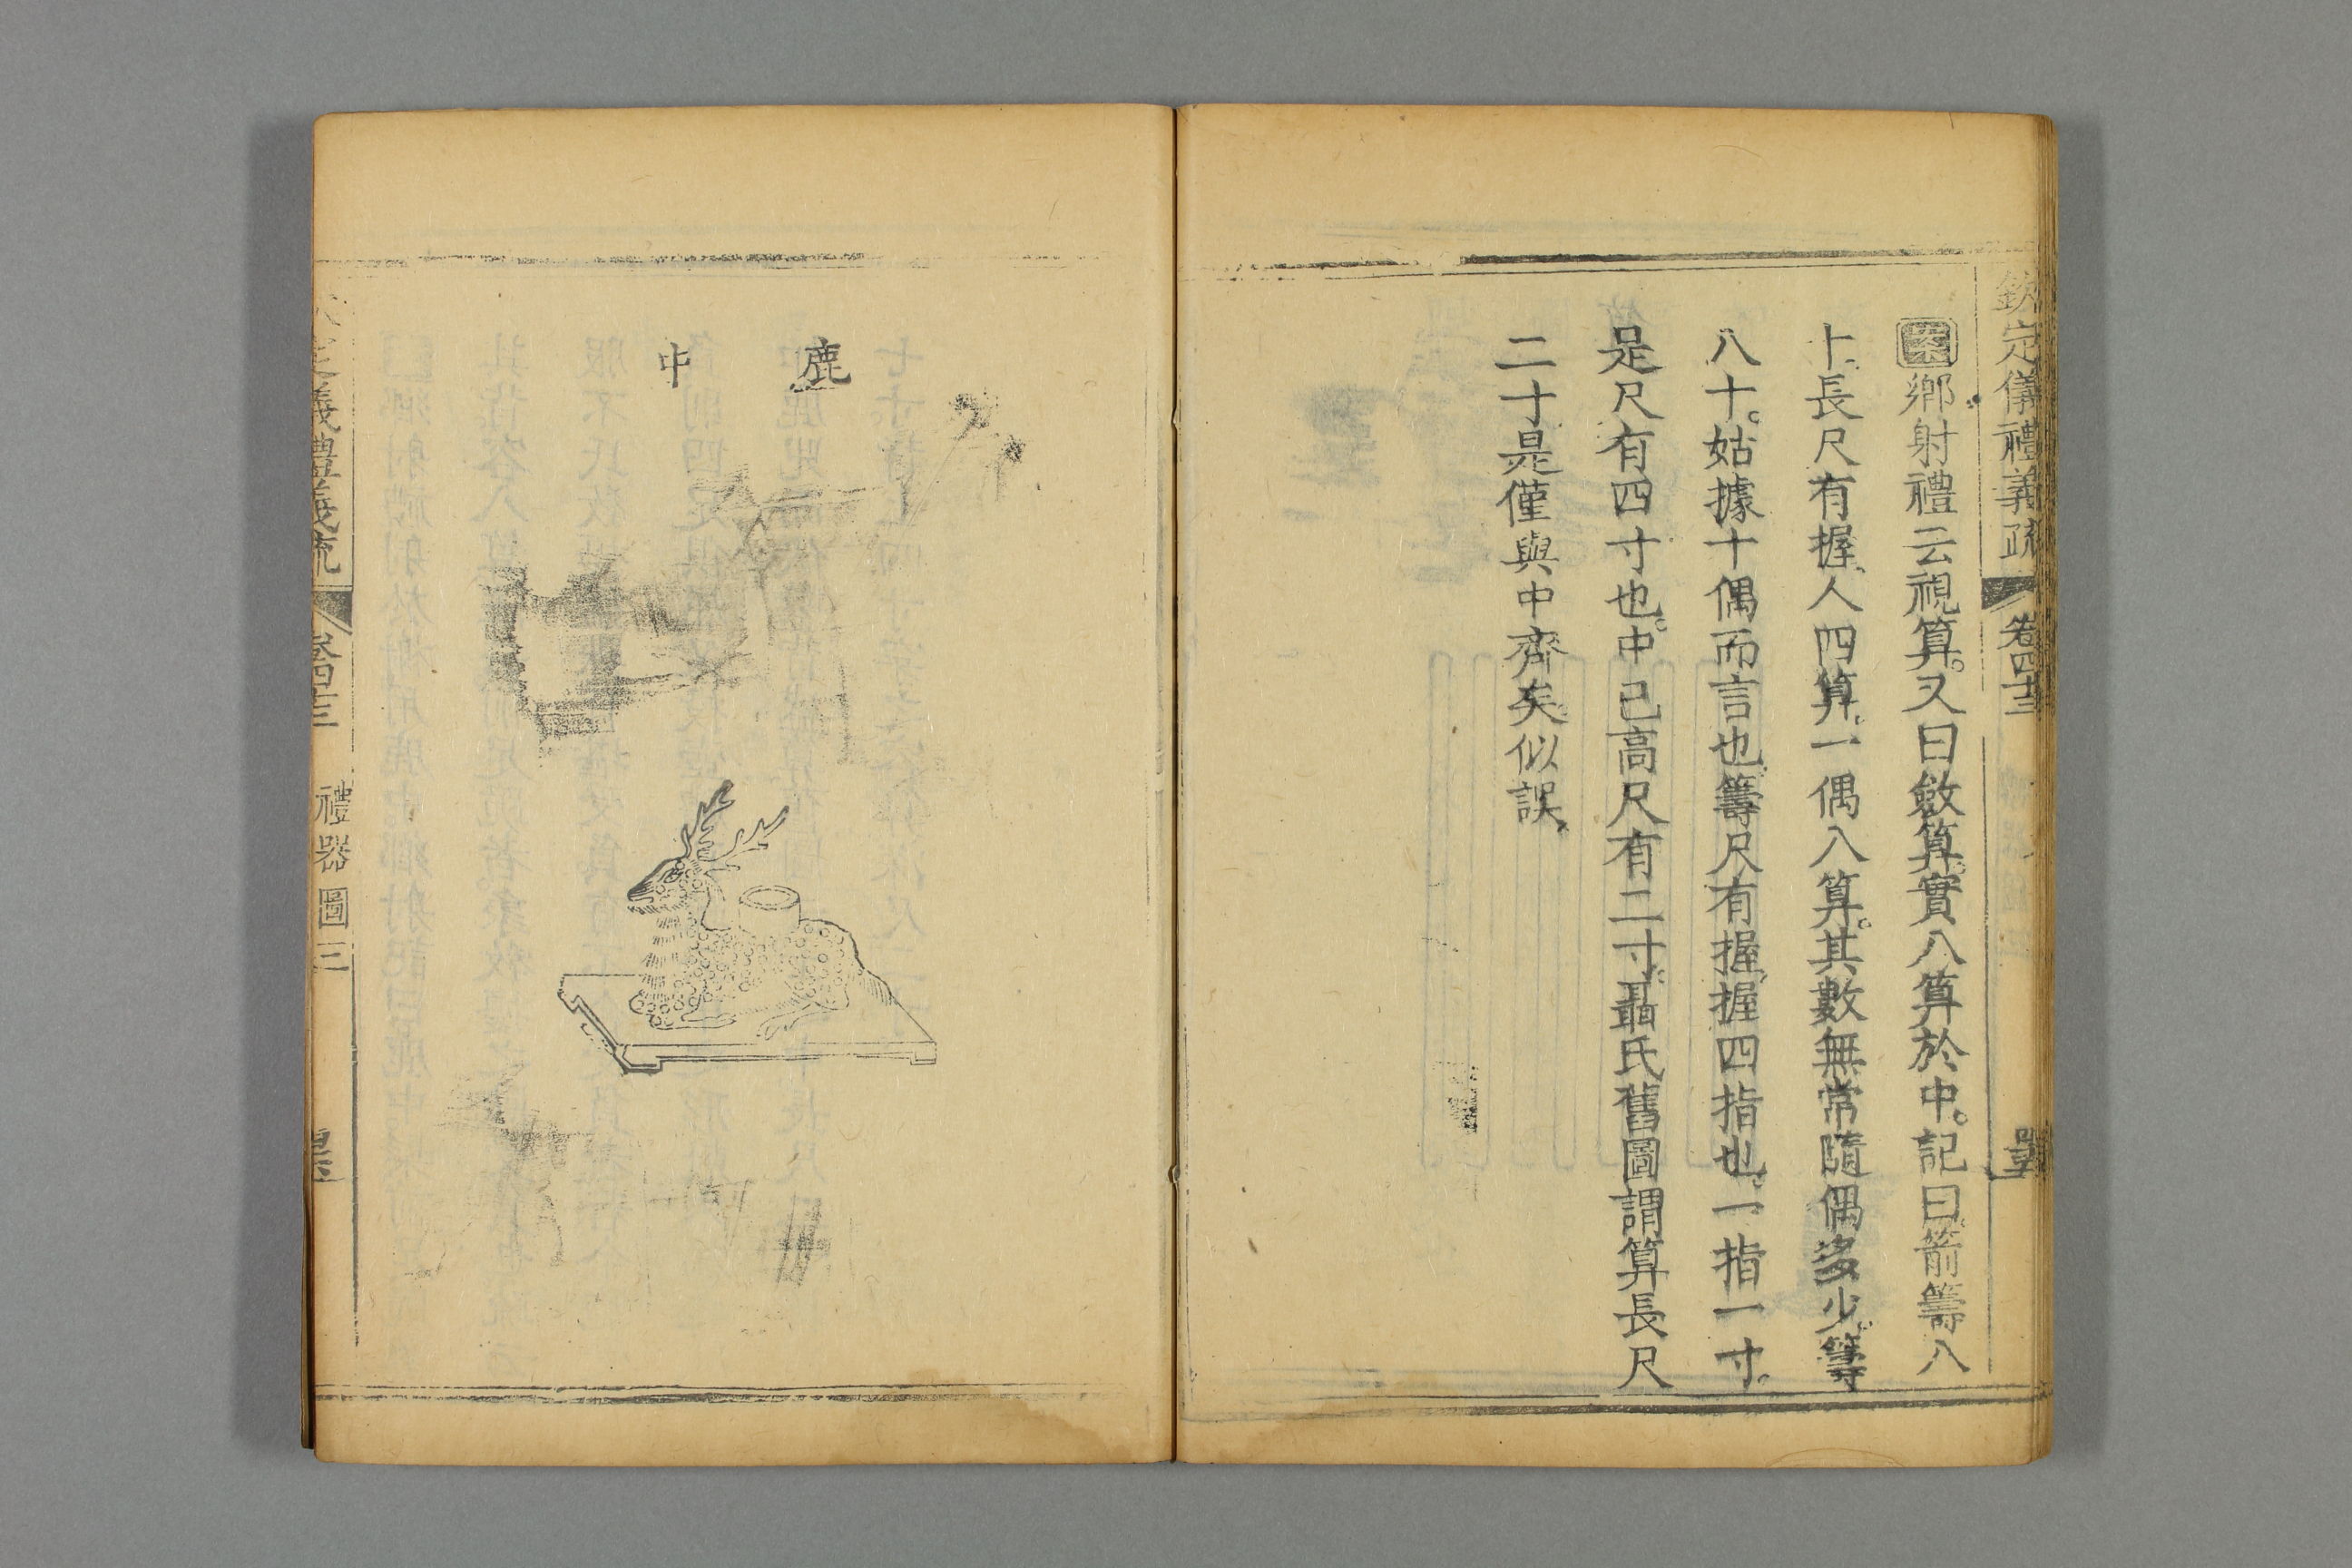 欽定儀禮義疏 卷四十三
案鄉射禮云視算。又曰斂算。實八算於中。記曰。箭籌八
十。長尺有握。人四算。一偶八算。其數無常隨偶多少。籌
八十。姑據十偶而言也。籌尺有握。握四指也。一指一寸。
是尺有四寸也。中已高尺有二寸。聶氏舊圖謂算長尺
二寸是僅與中齊矣似誤。
鹿
中
義禮義疏 卷四十三 禮器圖三